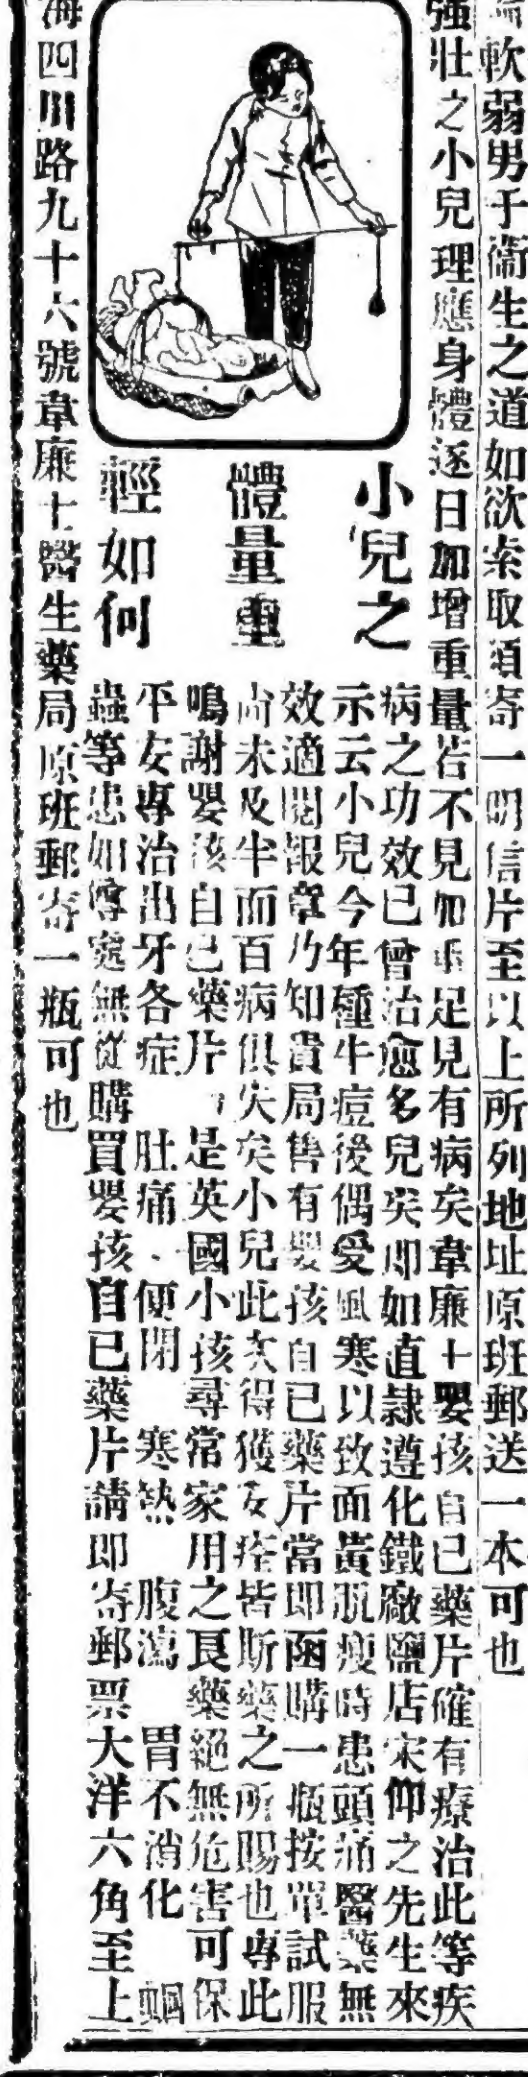 軟弱男子衞生之道如欲索取須寄一明信片至以上所列地址原班郵送一本可也
強壯之小兒理應身體逐日加增重量若不見加重足見有病矣韋廉士嬰孩自己藥片確有療治此等疾
小兒之
體量重
輕如何
病之功效已曾治愈多兒矣即如直隸遵化鐵廠鹽店宋仰之先生來
示云小兒今年種牛痘後偶受風寒以致面黃肌瘦時患頭痛醫藥無
效適閱報章乃知貴局售有嬰孩自己藥片當即函購一瓶按單試服
尚未及半而百病俱失矣小兒此次得獲安痊皆斯藥之所賜也專此
鳴謝嬰孩自己藥片 是英國小孩尋常家用之良藥絕無危害可保
平安專治出牙各症 肚痛、便閉 寒熱 腹瀉 胃不消化 蛔
蟲等患如遠處無從購買嬰孩自己藥片請即寄郵票大洋六角至上
海四川路九十六號韋廉士醫生藥局原班郵寄一瓶可也